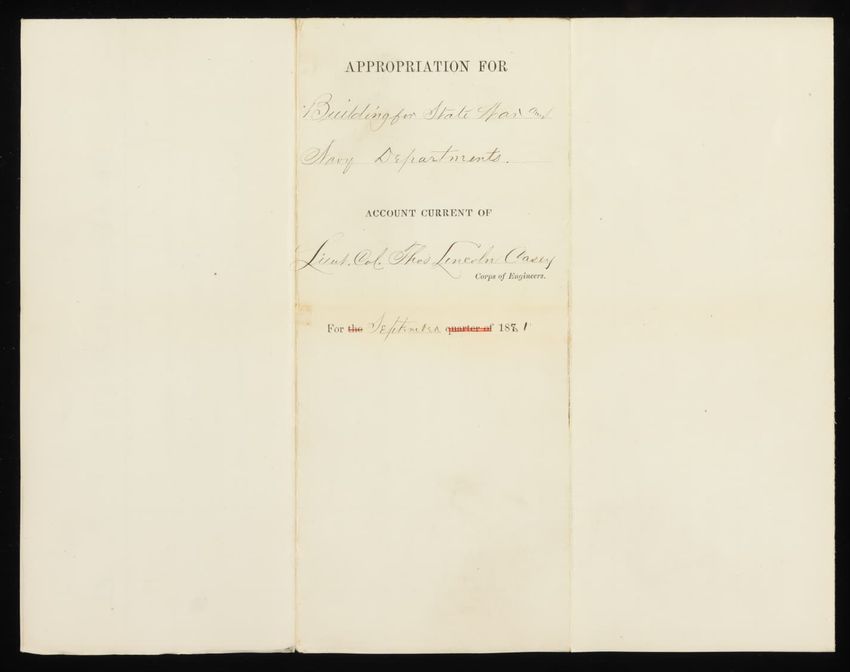 APPROPRIATION FOR
Building for State War and
Navy Departments.
ACCOUNT CURRENT OF
Lieut. Col. Thos Lincoln Casey
Corps of Engineers.
For the September quarter of 188 1